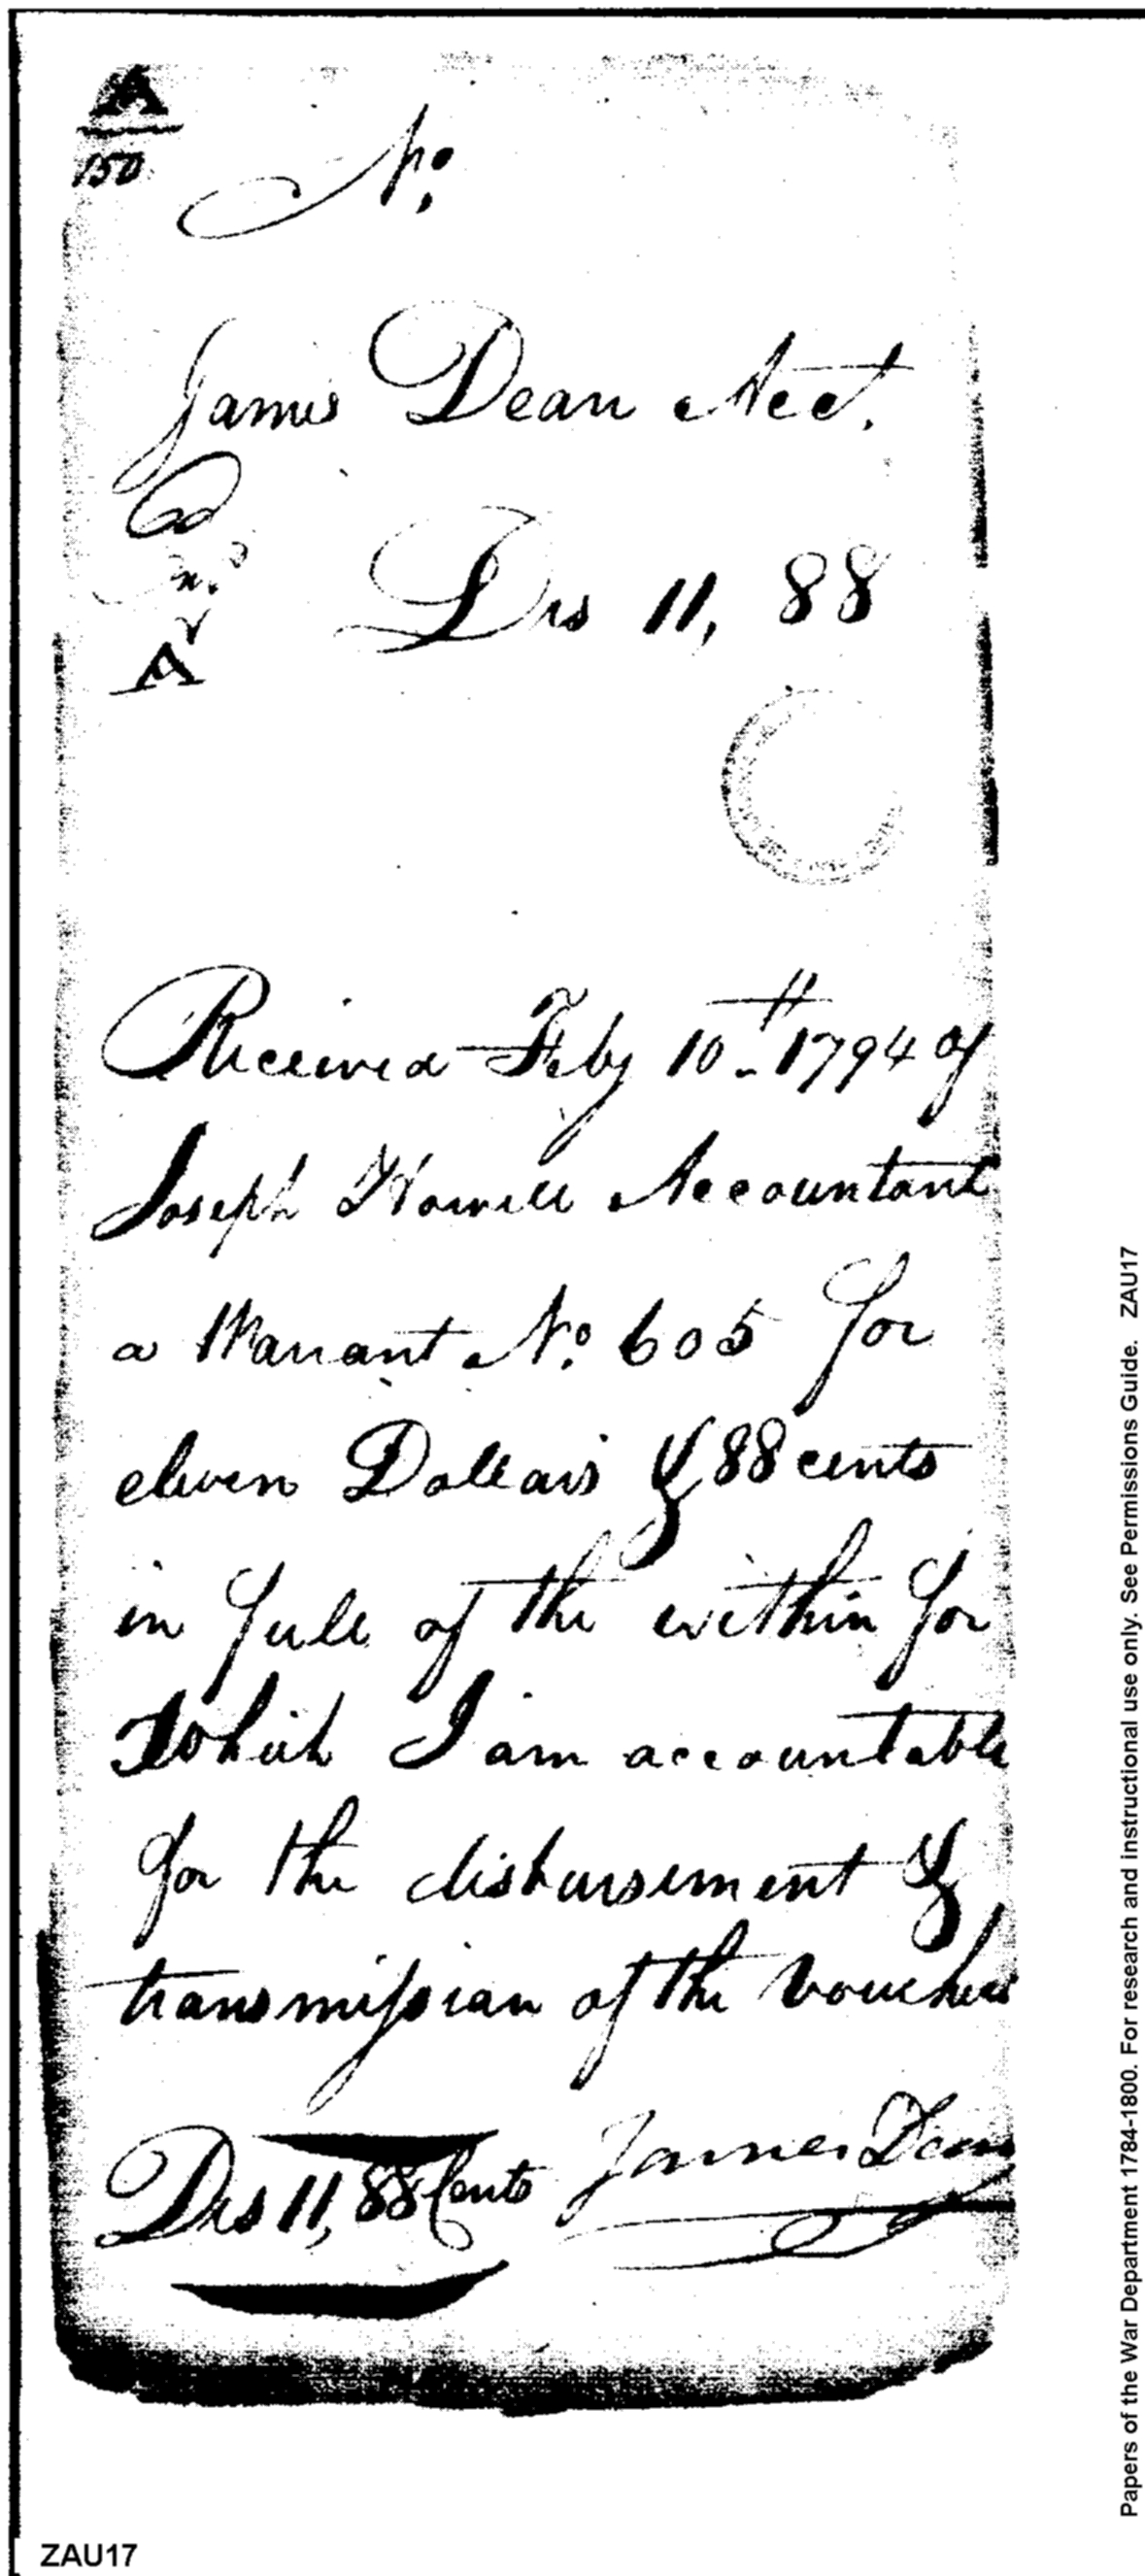 A
150
No.
James Dean Acct.
Co
A
Drs 11, 88
Received Feby 10th 1794 of
Joseph Howell Accountant
a Warrant No. 605 for
eleven Dollars & 88 cents
in full of the within for
Which I am accountable
for the disbursement &
transmission of the vouchers
Drs 11, 88 Cents James Dean
Papers of the War Department 1784-1800. For research and instructional use only. See Permissions Guide. ZAU17
ZAU17